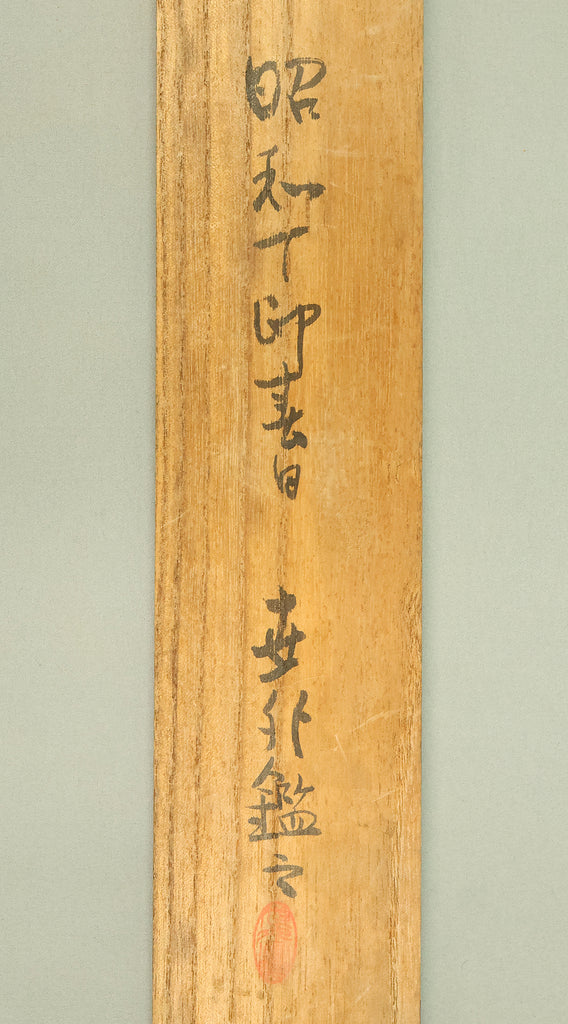 昭和丁卯春日 世外鑑之